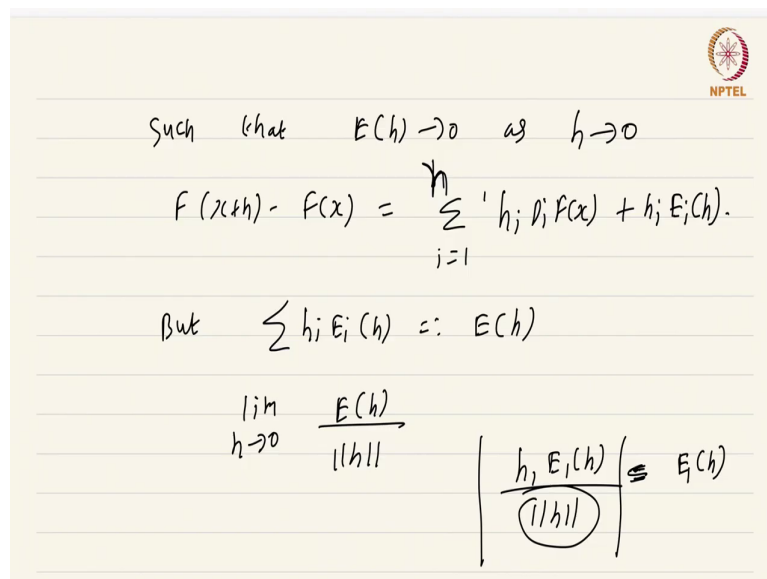 NPTEL
Such that E(h) → 0 as h → 0
F(x+h) - F(x) = n ∑ i=1 h_i D_i F(x) + h_i E_i(h).
But ∑ h_i E_i(h) =: E(h)
lim h→0 E(h) / ||h||
| h_1 E_1(h) / ||h|| | ≤ E_1(h)